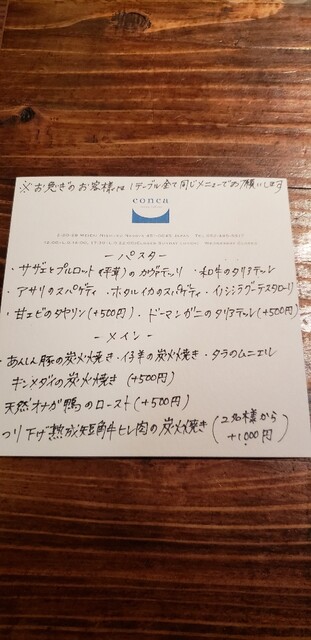 ※お急ぎのお客様は1テーブル全て同じメニューでお願いします
conca
ーパスター
・サザエとプルロット(平茸)のカヴァテッリ ・和牛のタリアテッレ
・アサリのスパゲティ ・ホタルイカのスパゲティ ・イノシシラグーテスタローリ
・甘エビのタヤリン(+500円) ・ドーマンガニのタリアテッレ(+500円)
ーメインー
・あんしん豚の炭火焼き ・仔羊の炭火焼き ・タラのムニエル
キンメダイの炭火焼き (+500円)
天然オナガ鴨のロースト(+500円)
つり下げ熟成短角牛ヒレ肉の炭火焼き(2名様から
+1,000円)